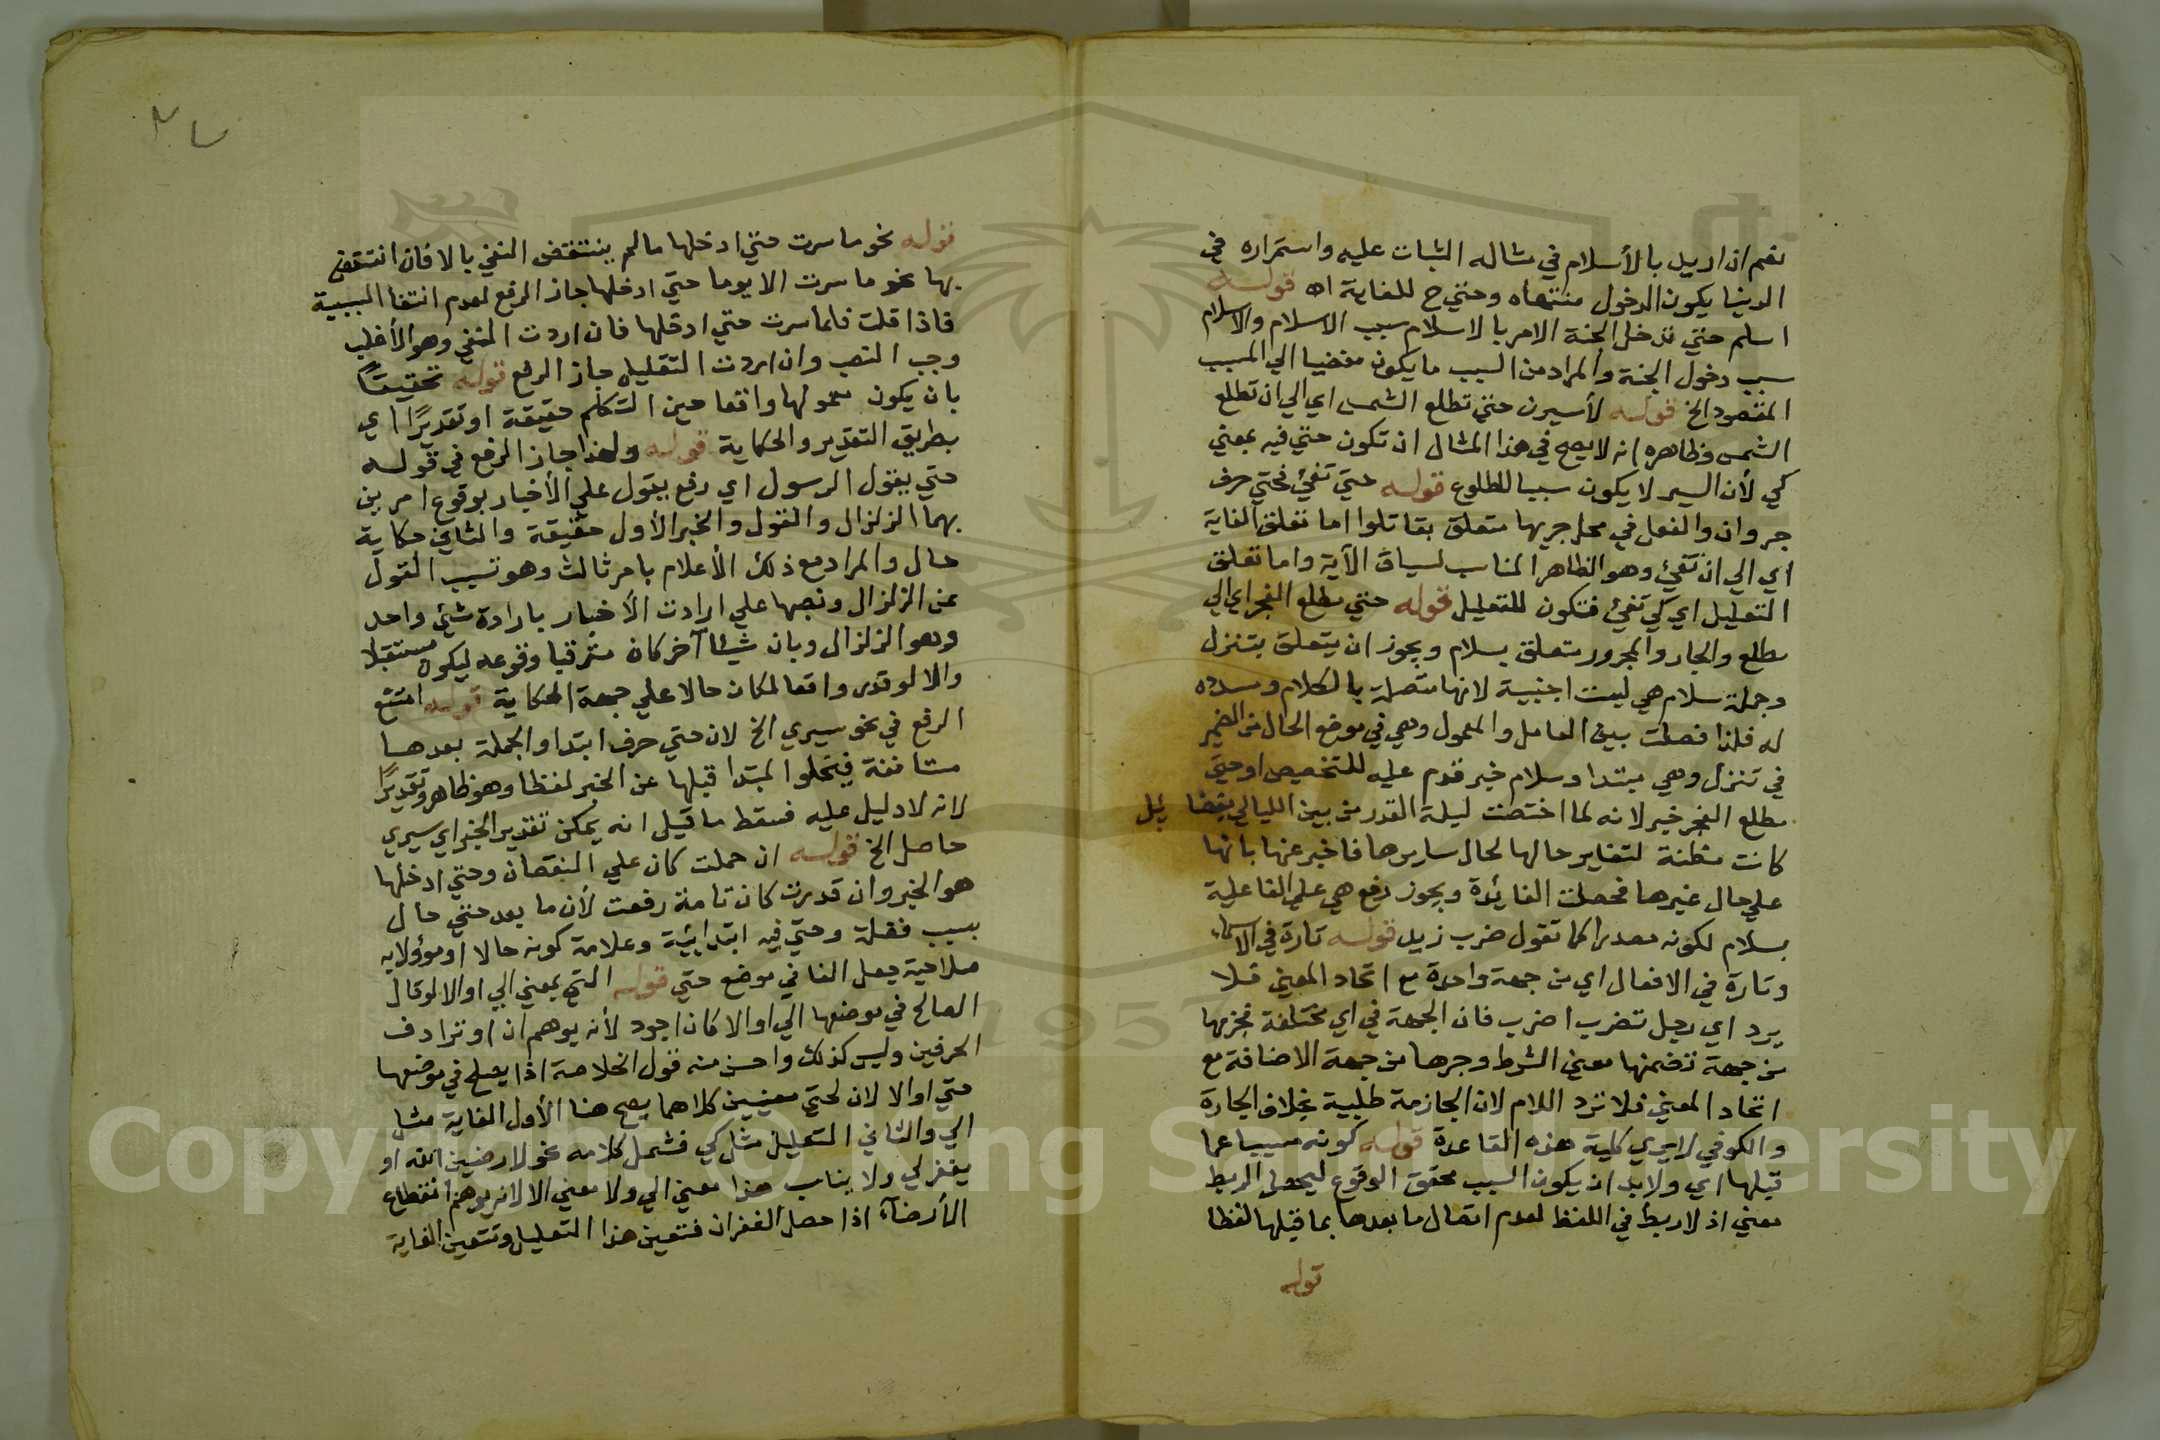 نعم ان اريد بالأسلام في مثاله الثبات عليه واستمراره في
الدنيا يكون الدخول منتهاه وحتي ح للغاية اه قوله
اسلم حتي تدخل الجنة الامر بالاسلام سبب الاسلام والاسلام
سبب دخول الجنة والمراد من السبب ما يكون مفضيا الي المسبب
المقصود الخ قوله لأسيرن حتي تطلع الشمس اي الي ان تطلع
الشمس وظاهره انه لا يصح في هذا المثال ان تكون حتي فيه بمعني
كي لأن السير لا يكون سببا للطلوع قوله حتي تفئ فحتي حرف
جر وان والفعل في محل جر بها متعلق بقاتلوا اما تعلق الغاية
اي الي ان تفئ وهو الظاهر المناسب لسياق الآية واما تعلق
التعليل اي كي تفئ فتكون للتعليل قوله حتي مطلع الفجر اي الي
مطلع والجار والمجرور متعلق بسلام ويجوز ان يتعلق بتنزل
وجملة سلام هي ليست اجنبية لانها متصلة بالكلام ومسدده
له فلذا فصلت بين العامل والمعمول وهي في موضع الحال من الضمير
في تنزل وهي مبتدا وسلام خبر قدم عليه للتخصيص او حتي
مطلع الفجر خبر لانه لما اختصت ليلة القدر من بين الليالي بفضا يل
كانت مظنة لتغاير حالها لحال سايرها فاخبر عنها بانها
علي حال غيرها فحصلت الفائدة ويجوز رفع هي علي الفاعلية
بسلام لكونه مصدرا كما تقول ضرب زيد قوله تارة في الاسماء
وتارة في الافعال اي من جهة واحدة مع اتحاد المعني فلا
يرد اي رجل تضرب اضرب فان الجهة في اي مختلفة فجزمها
من جهة تضمنها معني الشرط وجرها من جهة الاضافة مع
اتحاد المعني فلا ترد اللام لان الجازمة طلبية بخلاف الجارة
والكوفي لا يري كلية هذه القاعدة قوله كونه مسببا عما
قبلها اي ولا بد ان يكون السبب محقق الوقوع ليحصل الربط
معني اذ لا ربط في اللفظ لعدم اتصال ما بعدها بما قبلها لفظا
قوله
قوله نحو ما سرت حتي ادخلها ما لم ينتقض النفي بالا فان انتقض
بها نحو ما سرت الا يوما حتي ادخلها جاز الرفع لعدم انتفا السببية
فاذا قلت قلما سرت حتي ادخلها فان اردت النفي وهو الأغلب
وجب النصب وان اردت التقليل جاز الرفع قوله تحقيقًا
بان يكون معمولها واقعا حين التكلم حقيقة او تقديرًا اي
بطريق التقدير والحكاية قوله ولهذا جاز الرفع في قوله
حتي يقول الرسول اي رفع يقول علي الأخبار بوقوع امرين
بهما الزلزال والقول والخبر الأول حقيقة والثاني حكاية
حال والمراد مع ذلك الأعلام بامر ثالث وهو تسبب القول
عن الزلزال ونصبها علي ارادت الأخبار بارادة شئ واحد
وهو الزلزال وبان شيئا آخر كان مترقبا وقوعه ليكون مستقبلا
والا لو قدر واقعا لكان حالا علي جهة الحكاية قوله امتنع
الرفع في نحو سيري الخ لان حتي حرف ابتدا والجملة بعدها
مستانفة فيخلوا المبتدا قبلها عن الخبر لفظا وهو ظاهر وتقديرًا
لانه لا دليل عليه فسقط ما قيل انه يمكن تقدير الخبر اي سيري
حاصل الخ قوله ان حملت كان علي النقصان وحتي ادخلها
هو الخبر وان قدرت كان تامة رفعت لأن ما بعد حتي حال
بسبب فضلة وحتي فيه ابتدائية وعلامة كونه حالا او مؤولا به
صلاحية جعل الفا في موضع حتي قوله التي بمعني الي او الا لو قال
الصالح في موضعها الي او الا كان اجود لأنه يوهم ان او ترادف
الحرفين وليس كذلك واحسن منه قول الخلاصة اذا يصلح في موضعها
حتي او الا لان لحتي معنيين كلاهما يصح هنا الأول الغاية مثل
الي والثاني التعليل مثل كي فشمل كلامه نحو لارضين الله او
يغفر لي ولا يناسب هذا معني الي ولا معني الا لانه يوهم انقطاع
الأرضآء اذا حصل الغفران فتعين هذا التعليل وتتعين الغاية